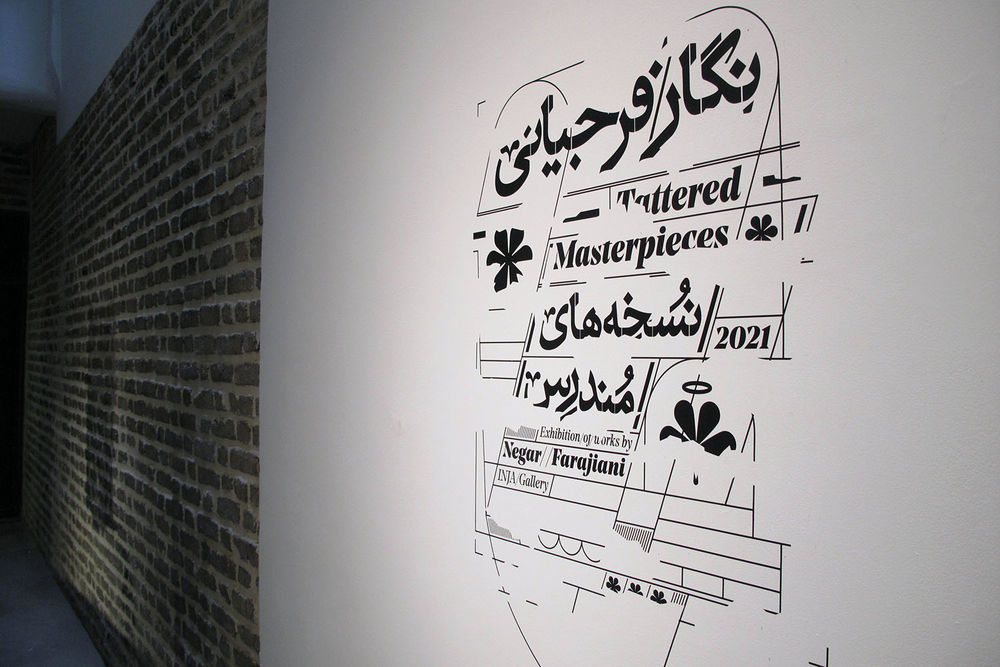 نگار فرجیانی
Tattered
Masterpieces
نُسخه‌های
2021
مُندرِس
Exhibition of works by
Negar Farajiani
INJA Gallery